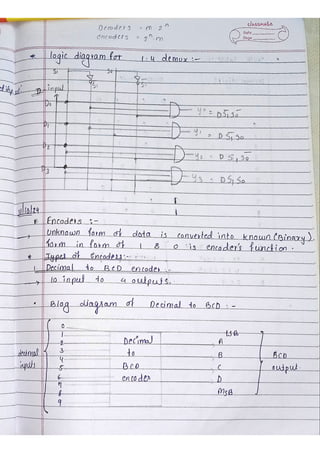 Decoders = n 2ⁿ
encoders = 2ⁿ n
classmate
Date
Page
* logic diagram for 1:4 demux :-
S1 S0
D input
D0
y0 = D S̄1 S̄0
D1
y1 = D S̄1 S0
D2
y2 = D S1 S̄0
D3
y3 = D S1 S0
Encoders :-
→ Unknown form of data is converted into known (Binary)
form in form of 1 & 0 is encoder's function.
* Types of Encoders:-
1. Decimal to BCD encoder -
→ 10 input to 4 outputs.
• Blog diagram of Decimal to BCD :-
0
1 LSB
2 Decimal A
decimal 3 to B BCD
inputs 4
5 BCD C output
6 encoder D
7 MSB
8
9